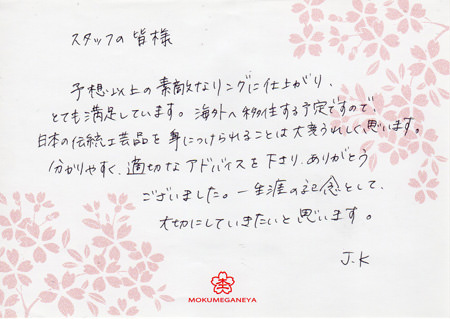 スタッフの皆様
予想以上の素敵なリングに仕上がり、
とても満足しています。海外へ移住する予定ですので、
日本の伝統工芸品を身につけられることは大変うれしく思います。
分かりやすく、適切なアドバイスを下さり、ありがとう
ございました。一生涯の記念として、
大切にしていきたいと思います。
J.K
MOKUMEGANEYA